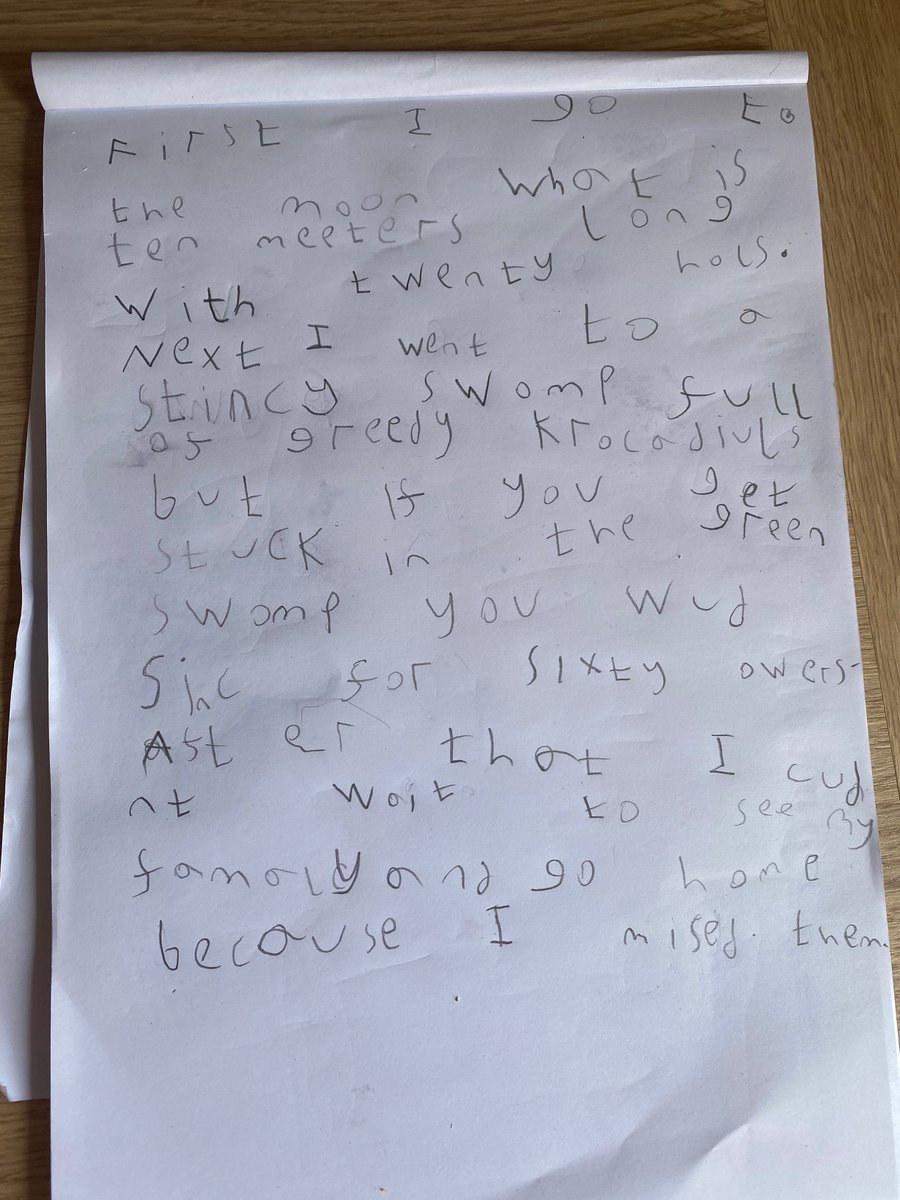 First I go to
the moon what is
ten meeters long
with twenty hols.
Next I went to a
Strincy swomp full
of greedy Krocadiuls
but if you get
stuck in the green
swomp you wud
Sinc for sixty owers.
After that I cud
nt wait to see my
famaly and go home
because I mised them.